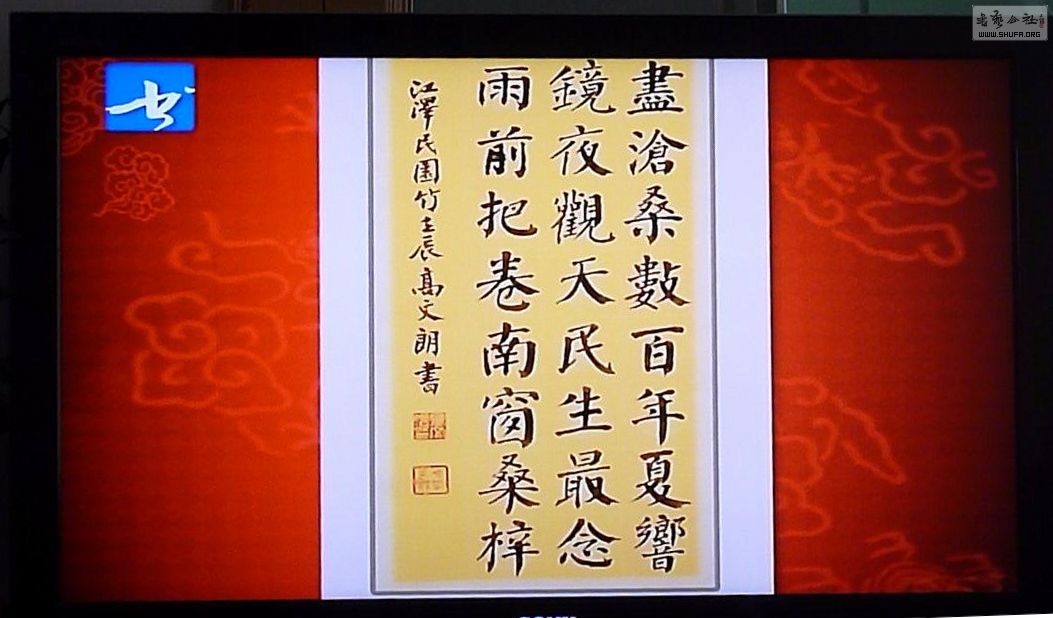 盡滄桑數百年夏響
鏡夜觀天民生最念
雨前把卷南窗桑梓
江澤民園竹壬辰高文朗書
书
書藝公社
WWW.SHUFA.ORG